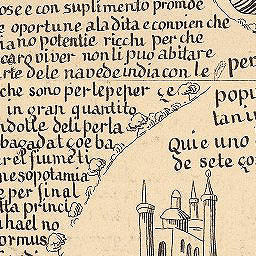 ose e con suplimento promde
e oportune ala dita e convien che
iano potentie ricchi per che
caro viver non li puo abitare
rte de le nave de india con le
che sono per le peser
in gran quantito
ndolle de li perla
bagadat ço e ba
r el fiume ti
mesopotamia
e per fin al
tta princi
ahael no
ormus
per
popu
tan in
Qui e uno
de sete ço